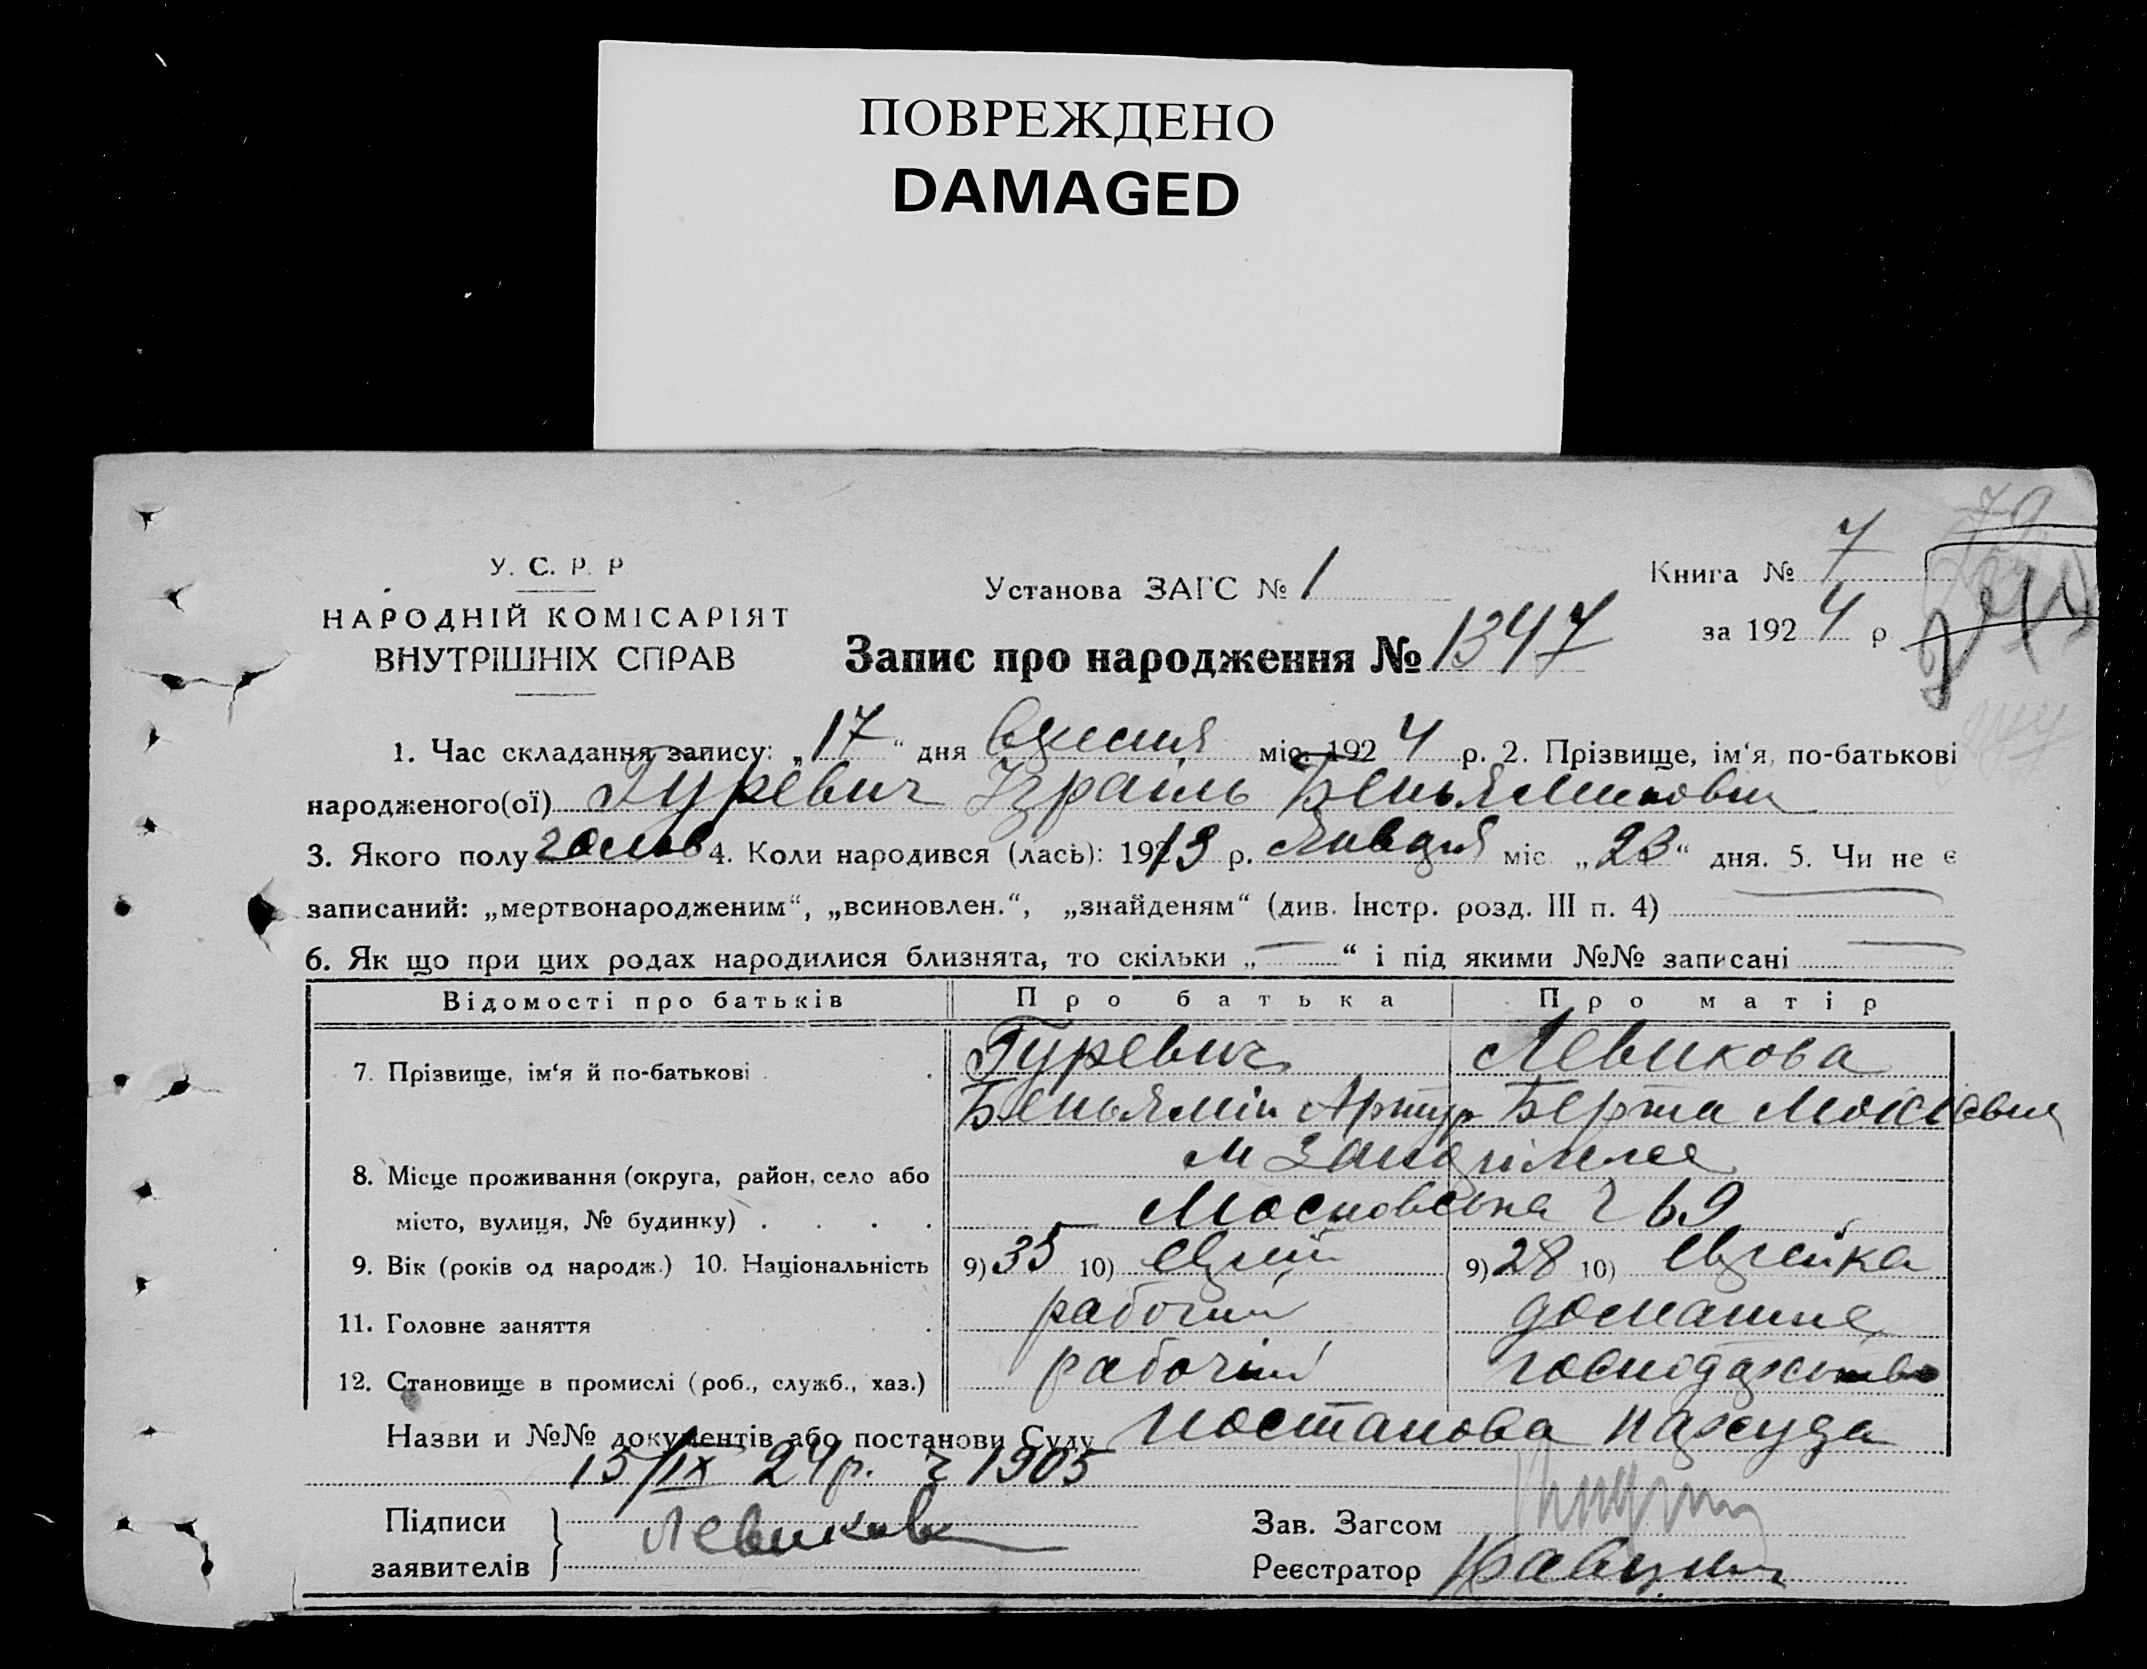 ПОВРЕЖДЕНО
DAMAGED
У. С. Р. Р
НАРОДНІЙ КОМІСАРІЯТ
ВНУТРІШНІХ СПРАВ
Установа ЗАГС № 1
Книга № 7
за 192 4 р
Запис про народження № 1347
1. Час складання запису: „17“ дня вересня міс. 192 4 р. 2. Прізвище, ім‘я, по-батькові
народженого(ої) Гуревич Ізраіль Беньяминович
3. Якого полу 4. Коли народився (лась): 1913 р. января міс „23“ дня. 5. Чи не є
записаний: „мертвонародженим“, „всиновлен.“, „знайденям“ (див. Інстр. розд. III п. 4)
6. Як що при цих родах народилися близнята, то скільки „ — “ і під якими №№ записані —
Відомості про батьків Про батька Про матір
7. Прізвище, ім‘я й по-батькові Гуревич Левикова
Беньямін Артур Берта Моісієвна
8. Місце проживання (округа, район, село або м
місто, вулиця, № будинку) Московська 69
9. Вік (років од народж.) 10. Національність 9) 35 10) єврей 9) 28 10) єврейка
11. Головне заняття рабочий домашнє
12. Становище в промислі (роб., служб., хаз.) рабочій господарство
Назви и №№ документів або постанови Суду постанова нарсуда
15/IX 24 р. ч 1905
Підписи
заявителів
Левикова
Зав. Загсом
Реєстратор